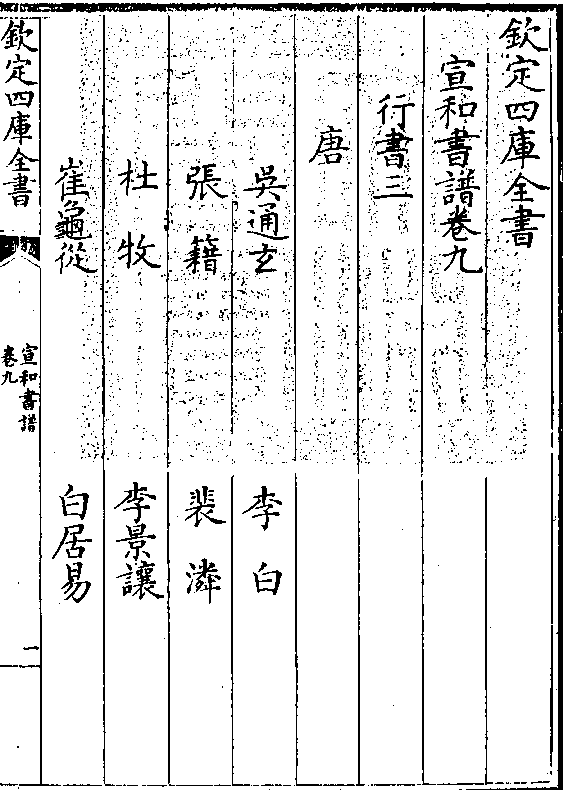 欽定四庫全書
宣和書譜卷九
行書三
唐
吳通玄 李白
張籍 裴潾
杜牧 李景讓
崔龜從 白居易
欽定四庫全書
宣和書譜
卷九
一